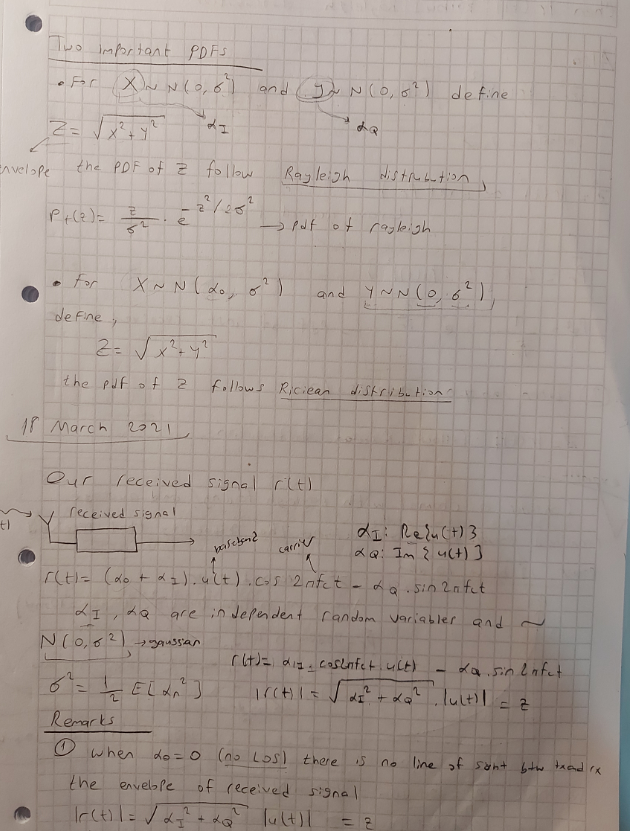 Two important PDFs
• For X ~ N(0, σ²) and Y ~ N(0, σ²) define
Z = √x²+y² αI αQ
envelope the PDF of z follow Rayleigh distribution,
P₊(z) = z/σ² · e^-z²/2σ² → pdf of rayleigh
• for X ~ N(α₀, σ²) and Y ~ N(0, σ²),
define,
Z = √x²+y²
the pdf of z follows Riciean distribution.
18 March 2021
Our received signal r(t)
received signal
αI: Re{u(t)}
carrier αQ: Im{u(t)}
r(t) = (α₀ + α2).u(t).cos 2πfct - αQ.sin2πfct
αI, αQ are independent random variables and ~
N(0, σ²) → gaussian
r(t) = αI.cos2πfct.u(t) - αQ.sin2πfct
σ² = 1/2 E[αn²] |r(t)| = √αI² + αQ² .|u(t)| = z
Remarks
① When α₀=0 (no LOS) there is no line of btw tx and rx
the envelope of received signal
|r(t)| = √αI² + αQ² |u(t)| = z